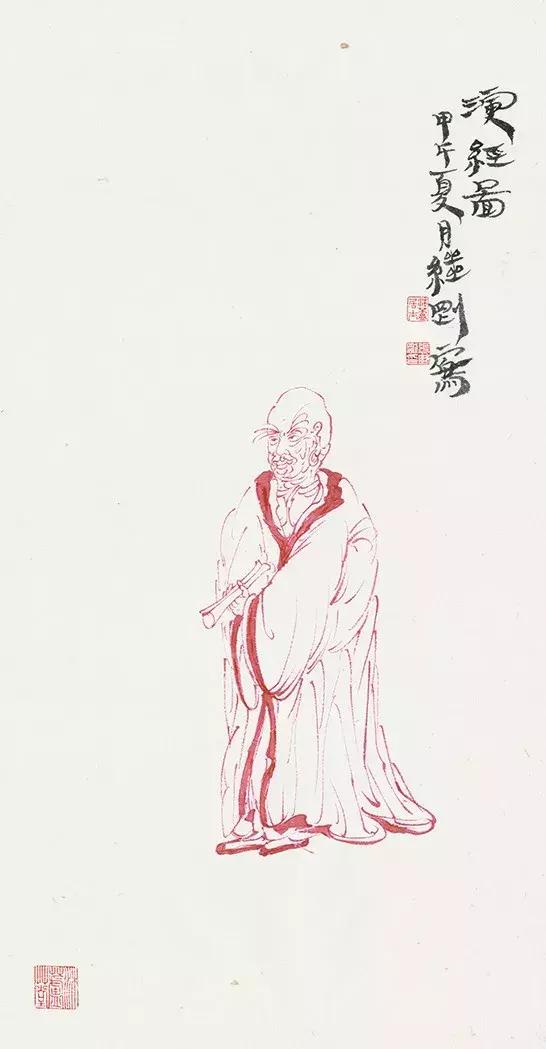 演經圖
甲午夏月継剛寫